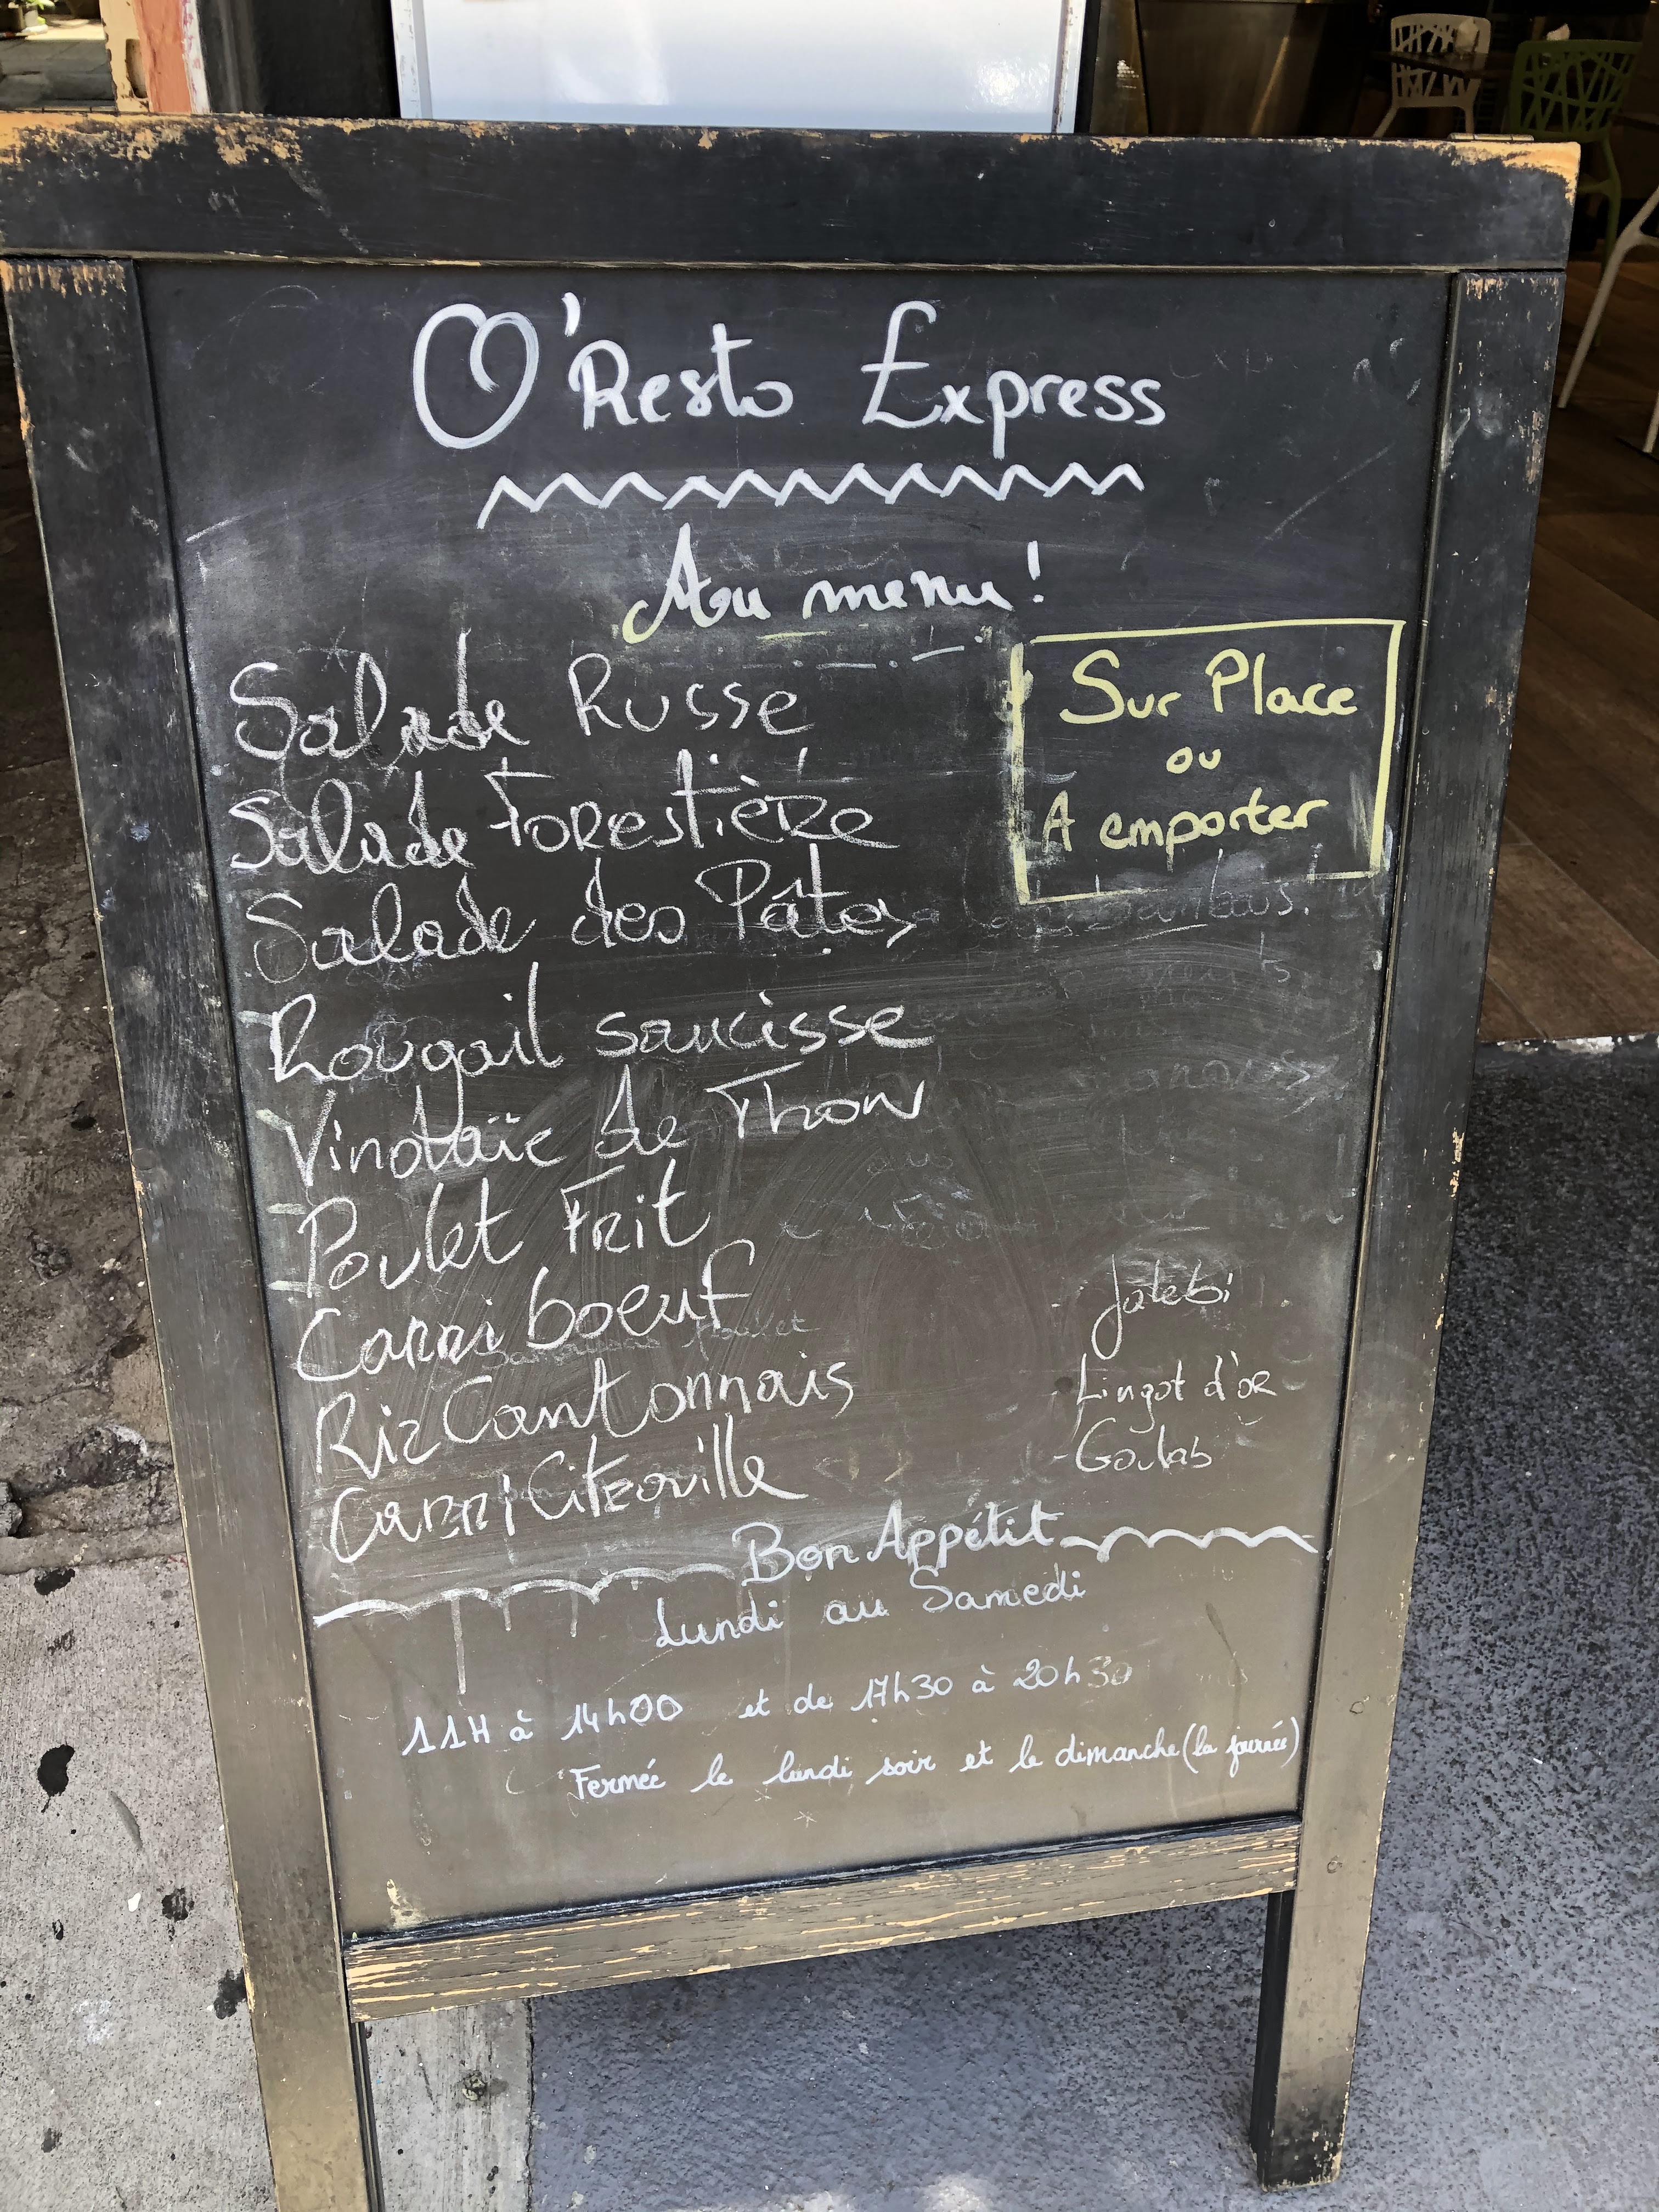 O'Resto Express
Au menu!
Sur Place
ou
A emporter
Salade Russe
Salade Forestière
Salade des Pâtes
Rougail saucisse
Vindaïe de Thon
Poulet Frit
Carri boeuf
Riz Cantonnais
Carri Citrouille
- Jalebi
- Lingot d'or
- Goulab
Bon Appétit
Lundi au Samedi
11H à 14h00 et de 17h30 à 20h30
Fermée le lundi soir et le dimanche (la journée)